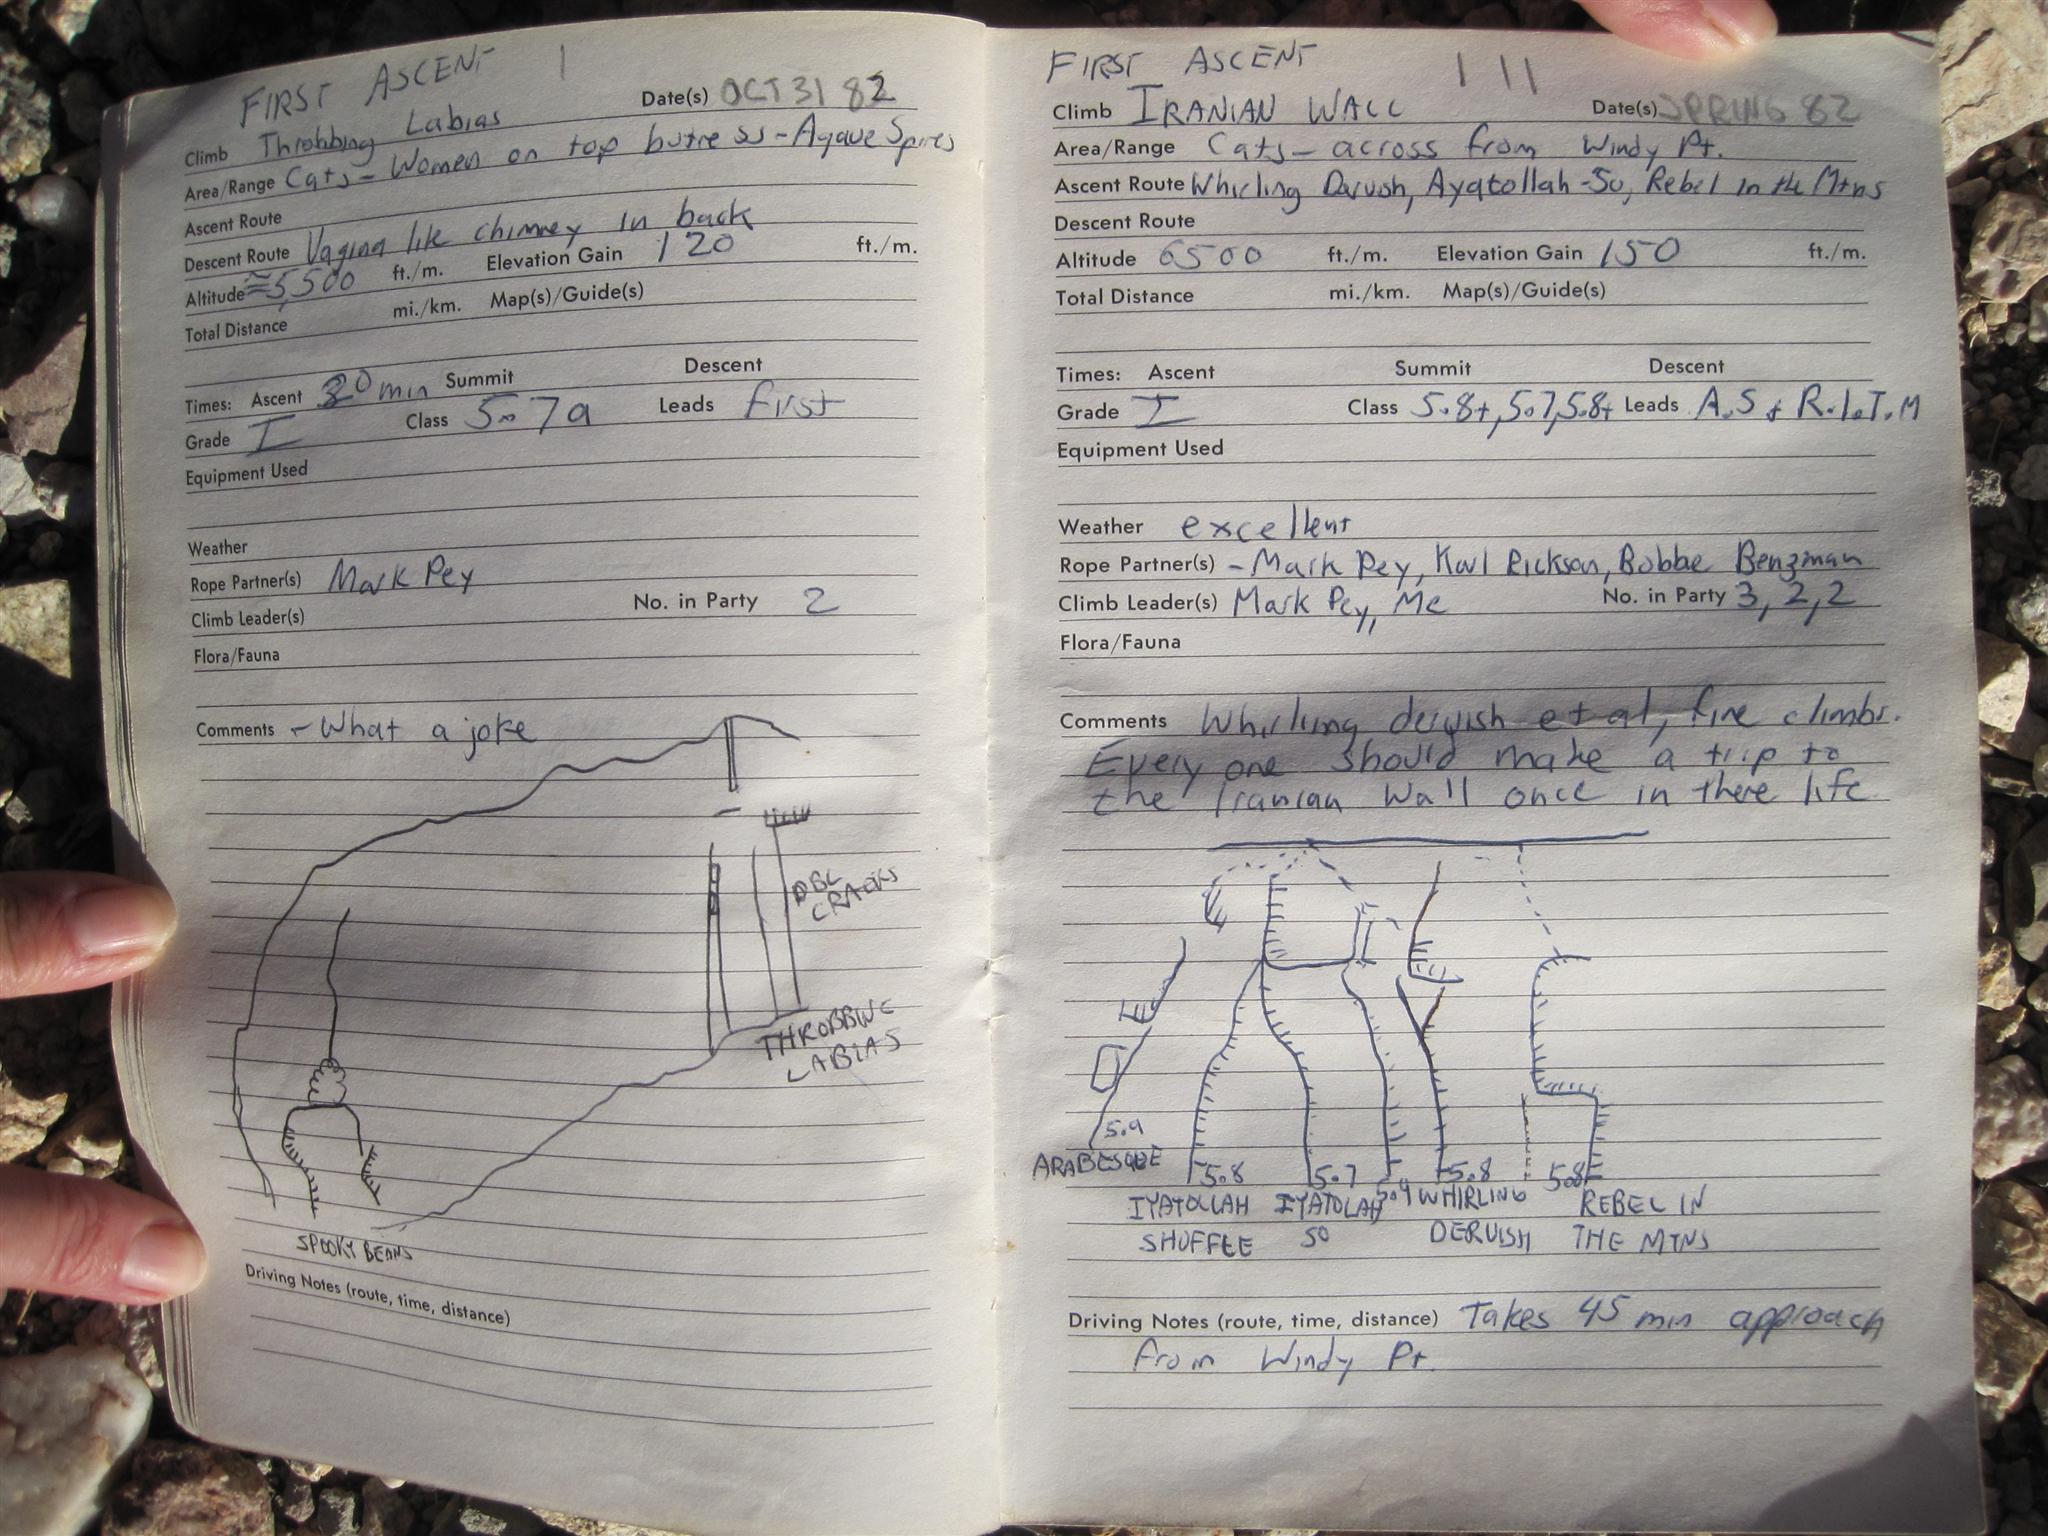 FIRST ASCENT
Date(s) OCT 31 82
Climb Throbbing Labias
Area/Range Cats - Women on top butress - Agave Spires
Ascent Route
Descent Route Vagina like chimney in back
Altitude ≈5,500 ft./m. Elevation Gain 120 ft./m.
Total Distance mi./km. Map(s)/Guide(s)
Times: Ascent 30 min Summit Descent
Grade I Class 5.7a Leads first
Equipment Used
Weather
Rope Partner(s) Mark Pey
Climb Leader(s) No. in Party 2
Flora/Fauna
Comments - What a joke
DBL
CRACKS
THROBBING
LABIAS
SPOOKY BEANS
Driving Notes (route, time, distance)
FIRST ASCENT
Climb IRANIAN WALL Date(s) SPRING 82
Area/Range Cats - across from Windy Pt.
Ascent Route Whirling Dervish, Ayatollah-So, Rebel in the Mtns
Descent Route
Altitude 6500 ft./m. Elevation Gain 150 ft./m.
Total Distance mi./km. Map(s)/Guide(s)
Times: Ascent Summit Descent
Grade I Class 5.8+, 5.7, 5.8+ Leads A.S & R.I.T.M
Equipment Used
Weather excellent
Rope Partner(s) - Mark Pey, Karl Rickson, Bobbe Benzman
Climb Leader(s) Mark Pey, Me No. in Party 3, 2, 2
Flora/Fauna
Comments Whirling dervish et al, fine climbs.
Every one should make a trip to
the Iranian Wall once in there life
5.9
ARABESQUE
5.8 5.7 5.9 5.8 5.8
IYATOLLAH IYATOLAH WHIRLING REBEL IN
SHUFFLE SO DERVISH THE MTNS
Driving Notes (route, time, distance) Takes 45 min approach
from Windy Pt.